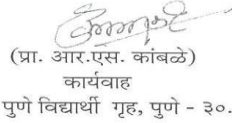 (प्रा. आर.एस. कांबळे)
कार्यवाह
पुणे विद्यार्थी गृह, पुणे - ३०.